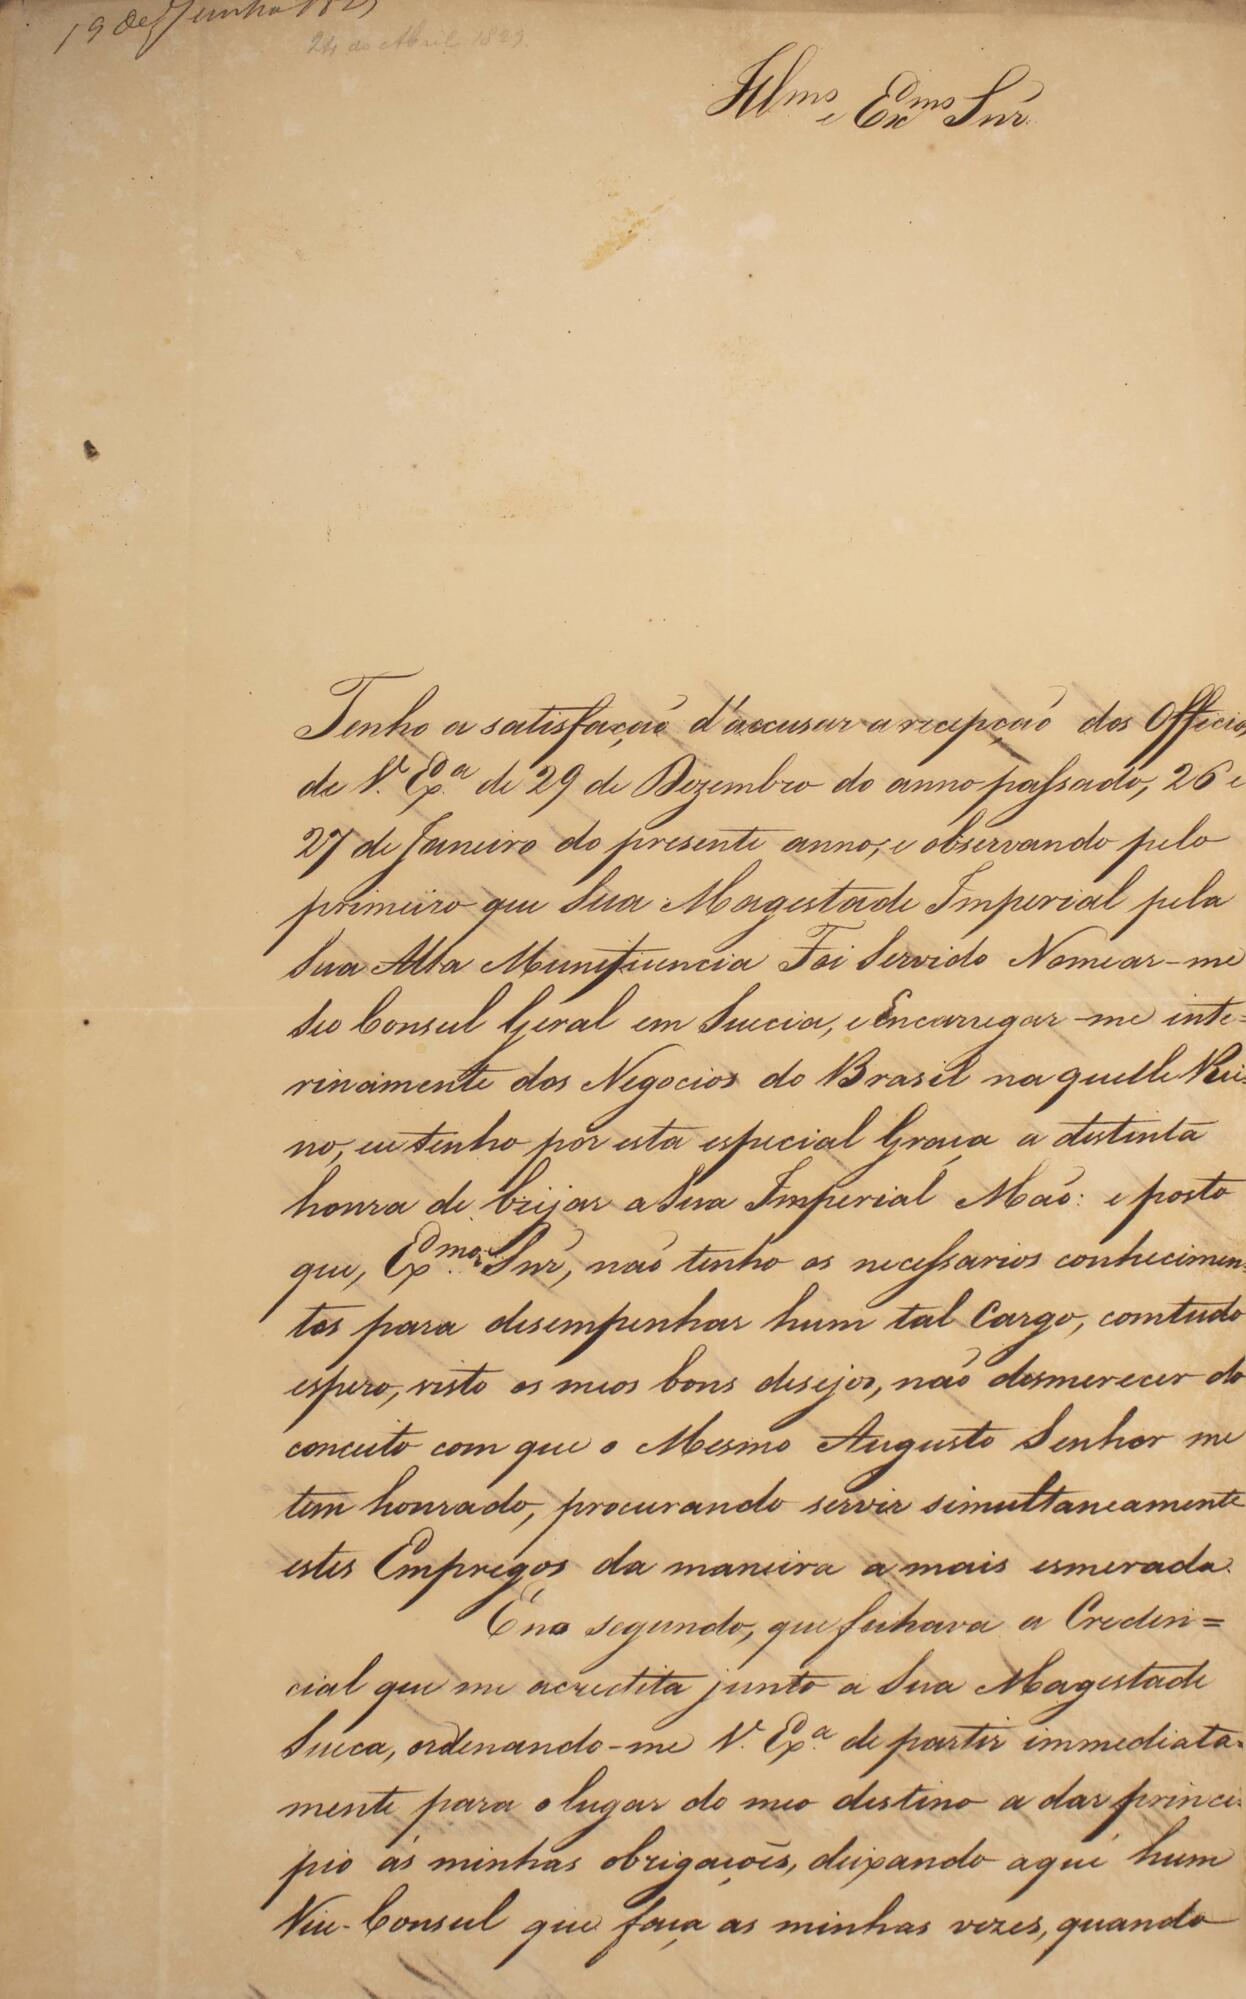 19 de Junho 1829
24 de Abril 1829.
Illmo e Exmo Snr.
Tenho a satisfação d'accusar a recepção dos Officios
de V. Exa. de 29 de Dezembro do anno passado, 26 e
27 de Janeiro do presente anno; e observando pelo
primeiro que Sua Magestade Imperial pela
Sua Alta Munificencia Foi Servido Nomear-me
Seo Consul Geral em Suecia, e Encarregar-me inte=
rinamente dos Negocios do Brasil naquelle Rei=
no, eu tenho por esta especial Graça a distinta
honra de beijar a Sua Imperial Mão: e posto
que, Exmo. Snr, não tenho os necessarios conhecimen=
tos para desempenhar hum tal Cargo, comtudo
espero, visto os meos bons desejos, não desmerecer do
conceito com que o Mesmo Augusto Senhor me
tem honrado, procurando servir simultaneamente
estes Empregos da maneira a mais esmerada.
E no segundo, que fechava a Creden=
cial que me acredita junto a Sua Magestade
Sueca, ordenando-me V. Exa. de partir immediata=
mente para o lugar do meo destino a dar princi=
pio ás minhas obrigações, deixando aqui hum
Vice-Consul que faça as minhas vezes, quando